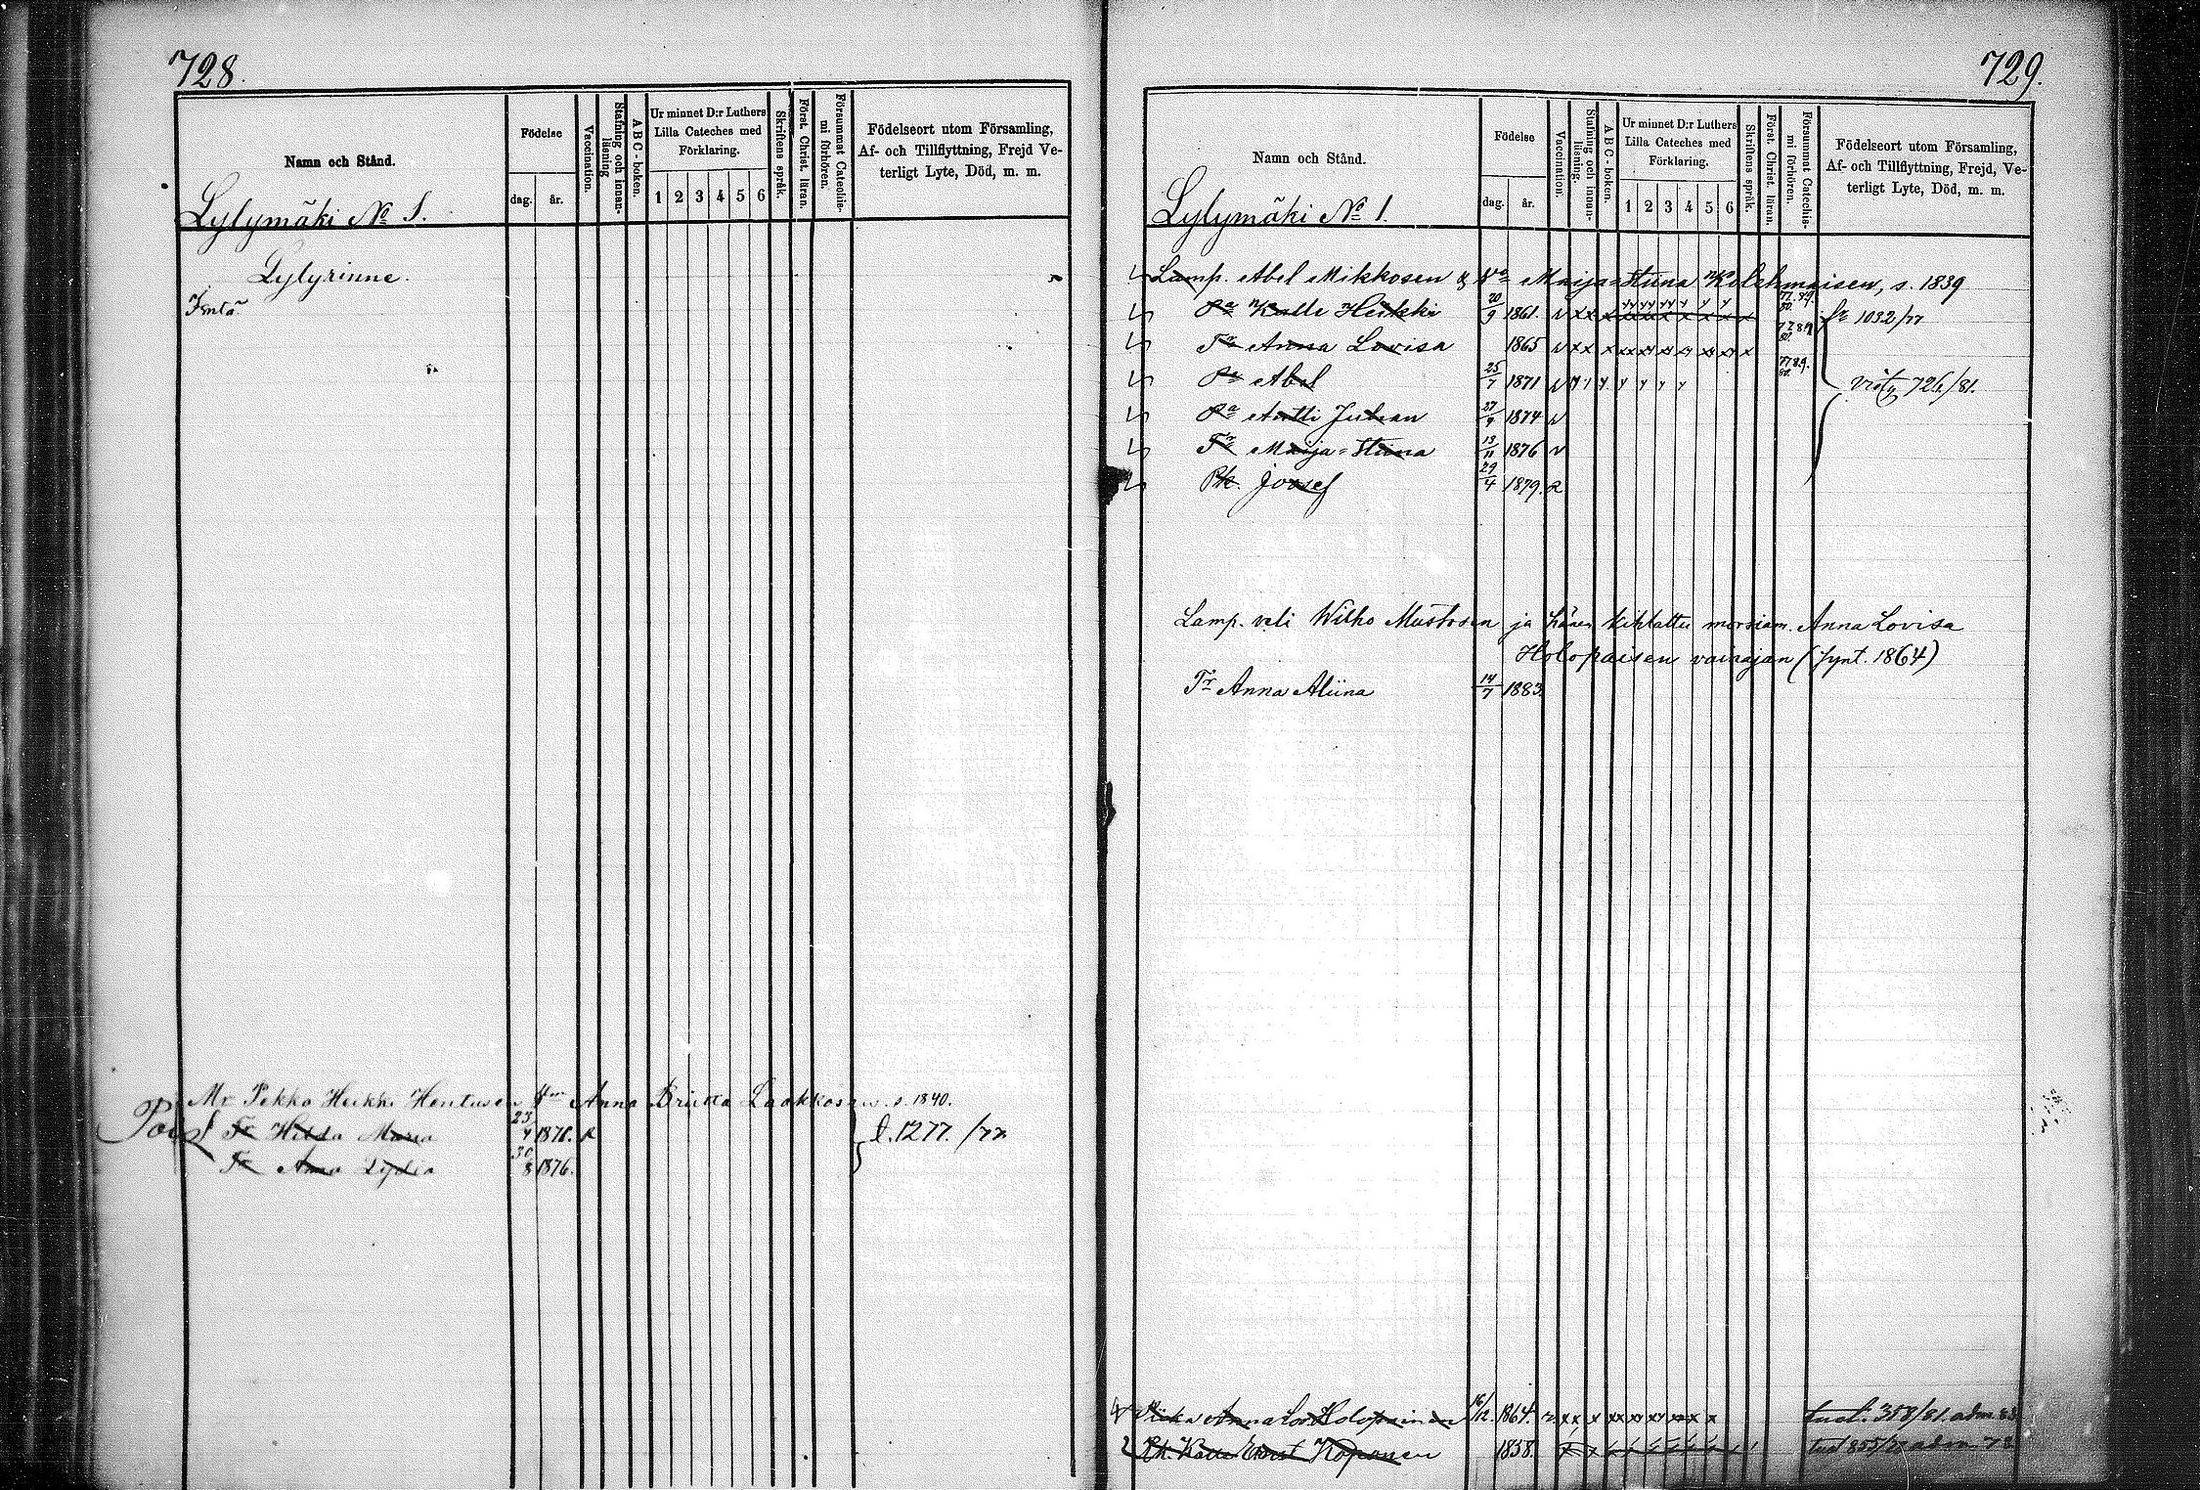 728.
Namn och Stånd.
Födelse
dag.
år.
Vaccination.
Stafning och innan-
läsning
ABC-boken.
Ur minnet D:r Luthers
Lilla Cateches med
Förklaring.
1 2 3 4 5 6
Skriftens språk.
Först. Christ. läran.
Försummat Catechis-
mi förhören.
Födelseort utom Församling,
Af- och Tillflyttning, Frejd Ve-
terligt Lyte, Död, m. m.
Lylymäki No 1.
Lylyrinne.
Mr Pekka Heikki Hentusen Anna Briitta Laakkosen s. 1840.
Pois Tr Hilda Maria 23/4 1871. R l. 1277. /77
Tr Anna Lydia 30/8 1876.
729.
Namn och Stånd.
Födelse
dag.
år.
Vaccination.
Stafning och innan-
läsning.
ABC-boken.
Ur minnet D:r Luthers
Lilla Cateches med
Förklaring.
1 2 3 4 5 6
Skriftens språk.
Först. Christ. läran.
Försummat Catechis-
mi förhören.
Födelseort utom Församling,
Af- och Tillflyttning, Frejd, Ve-
terligt Lyte, Död, m. m.
Lylymäki No 1.
Lamp. Abel Mikkosen & Maija Stiina Kolehmaisen, s. 1839
Pa Kalle Heikki 20/9 1861. 1032/77
Tr Anna Lovisa 1865
Pa Abel 25/7 1871 726/81.
Pa Antti Juhan 27/9 1874
Tr Maija-Stiina 13/11 1876
Pk. Joosef 29/4 1879. R
Lamp. veli Wilho Mustosen ja hänen kihlattu morsiam. Anna Lovisa
Holopaisen vainajan (synt. 1864)
Tr Anna Aliina 14/7 1883.
Piika Anna Lov Holopainen 16/12. 1864. tust. 358/81. adm. 83
Rk. Kalle Ernst Koponen 1858. tust 855/77 adm. 78